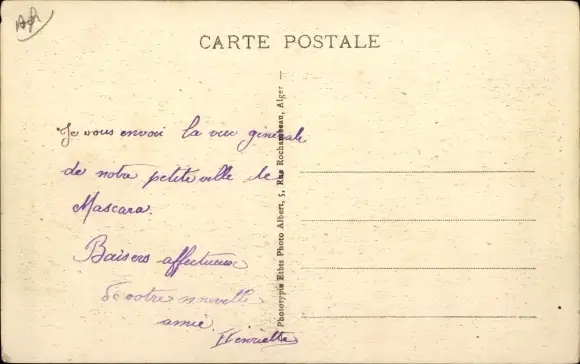 CARTE POSTALE
Je vous envoi la vue générale
de notre petite ville de
Mascara.
Baisers affectueux
de votre nouvelle
amie
Henriette
Phototypie Ethts Photo Albert, 5, Rue Rochambeau, Alger —